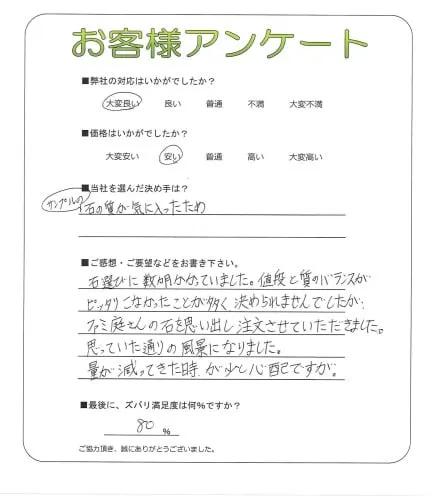 お客様アンケート
■弊社の対応はいかがでしたか?
大変良い 良い 普通 不満 大変不満
■価格はいかがでしたか?
大変安い 安い 普通 高い 大変高い
■当社を選んだ決め手は?
サンプルの石の質が気に入ったため
■ご感想・ご要望などをお書き下さい。
石選びに数かかっていました。値段と質のバランスが
ピッタリこなかったことが多く、決められませんでしたが、
ファミ庭さんの石を思い出し注文させていただきました。
思っていた通りの風景になりました。
量が減ってきた時、が少し心配ですが。
■最後に、ズバリ満足度は何%ですか?
80 %
ご協力頂き、誠にありがとうございました。